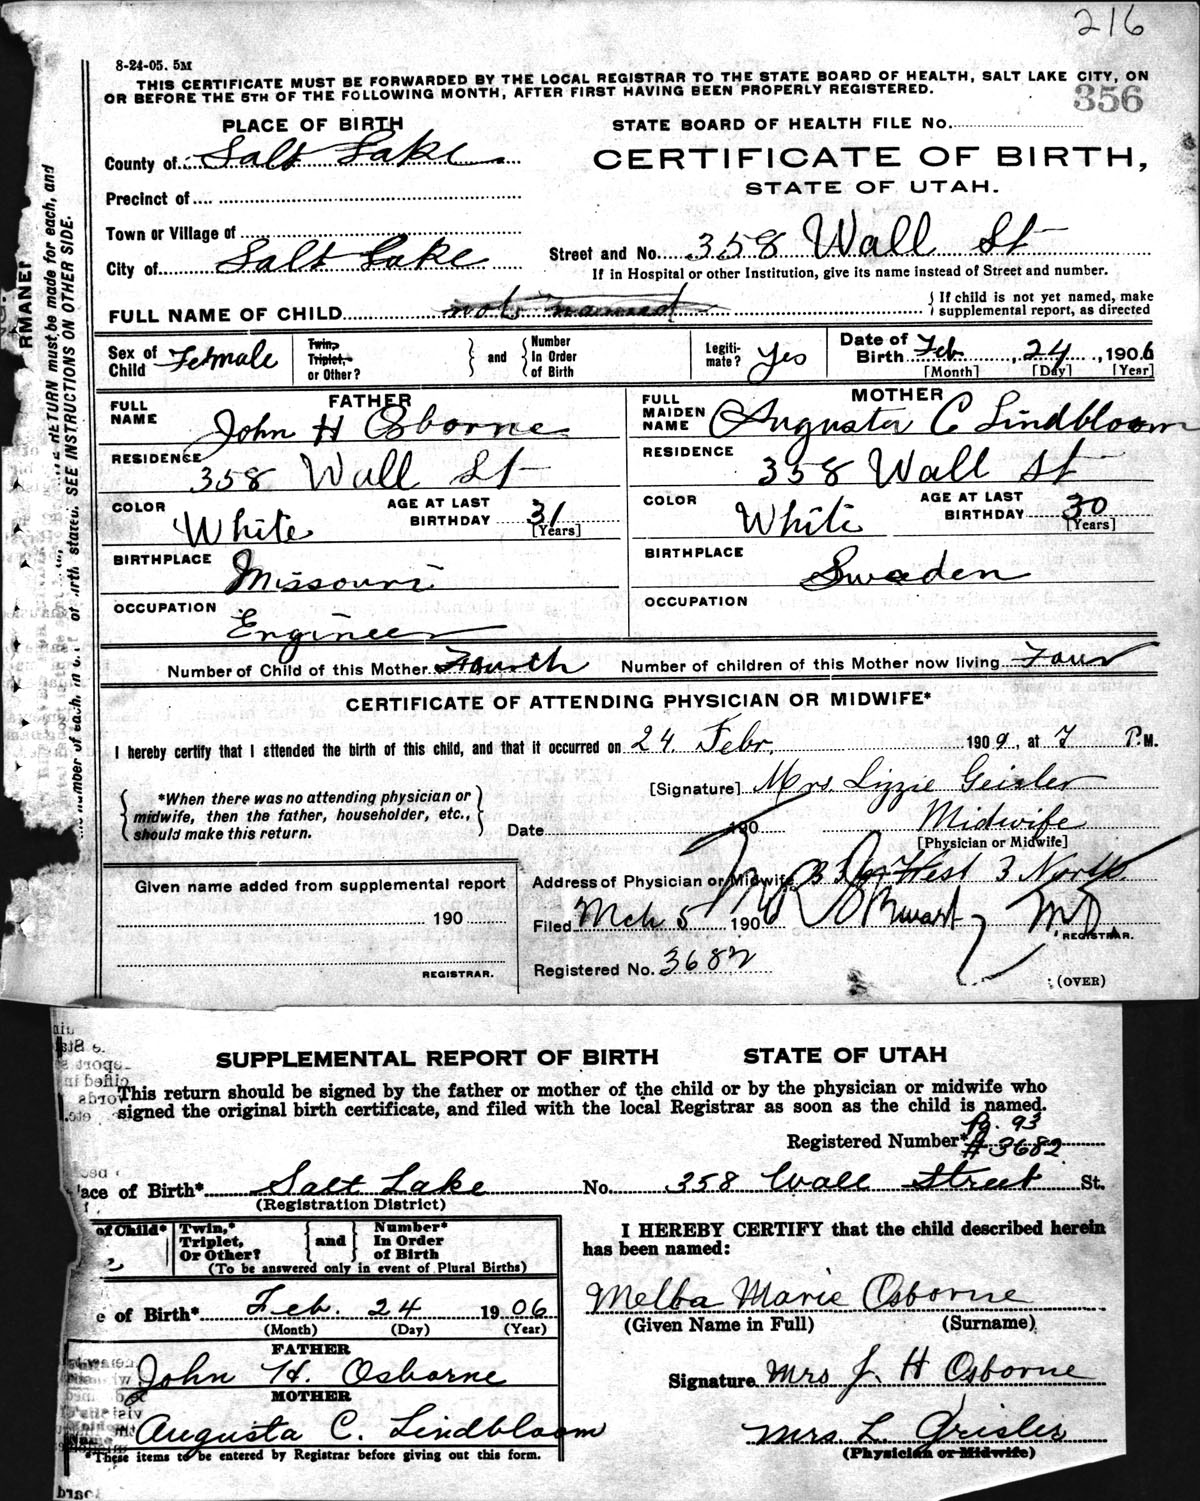 216
8-24-05. 5M
THIS CERTIFICATE MUST BE FORWARDED BY THE LOCAL REGISTRAR TO THE STATE BOARD OF HEALTH, SALT LAKE CITY, ON
OR BEFORE THE 5TH OF THE FOLLOWING MONTH, AFTER FIRST HAVING BEEN PROPERLY REGISTERED.
356
PLACE OF BIRTH
STATE BOARD OF HEALTH FILE No.
County of Salt Lake
CERTIFICATE OF BIRTH,
STATE OF UTAH.
Precinct of
Town or Village of
City of Salt Lake
Street and No. 358 Wall St
If in Hospital or other Institution, give its name instead of Street and number.
FULL NAME OF CHILD not named
If child is not yet named, make
supplemental report, as directed
Sex of Child Female
Twin, Triplet, or Other?
and
Number In Order of Birth
Legiti- mate? Yes
Date of Birth Feb 24, 1906
[Month] [Day] [Year]
FATHER
MOTHER
FULL NAME John H Osborne
FULL MAIDEN NAME Augusta C Lindbloom
RESIDENCE 358 Wall St
RESIDENCE 358 Wall St
COLOR White
AGE AT LAST BIRTHDAY 31 [Years]
COLOR White
AGE AT LAST BIRTHDAY 30 [Years]
BIRTHPLACE Missouri
BIRTHPLACE Sweden
OCCUPATION Engineer
OCCUPATION
Number of Child of this Mother Fourth
Number of children of this Mother now living Four
CERTIFICATE OF ATTENDING PHYSICIAN OR MIDWIFE*
I hereby certify that I attended the birth of this child, and that it occurred on 24 Febr. 1909, at 7 P.M.
*When there was no attending physician or
midwife, then the father, householder, etc.,
should make this return.
[Signature] Mrs. Lizzie Geisler
Date 190
Midwife
[Physician or Midwife]
Given name added from supplemental report
190
REGISTRAR.
Address of Physician or Midwife West 3 North
Filed Mch 5 1906 M.D.
REGISTRAR.
Registered No. 3682
(OVER)
RMANEN
RETURN must be made for each, and
the number of each, in of birth stated. SEE INSTRUCTIONS ON OTHER SIDE.
SUPPLEMENTAL REPORT OF BIRTH STATE OF UTAH
This return should be signed by the father or mother of the child or by the physician or midwife who
signed the original birth certificate, and filed with the local Registrar as soon as the child is named.
Pg. 93
Registered Number* # 3682
ace of Birth* Salt Lake No. 358 Wall Street St.
(Registration District)
of Child*
Twin,* Triplet, Or Other?
and
Number* In Order of Birth
(To be answered only in event of Plural Births)
I HEREBY CERTIFY that the child described herein
has been named:
e of Birth* Feb. 24 1906
(Month) (Day) (Year)
Melba Marie Osborne
(Given Name in Full) (Surname)
FATHER
John H. Osborne
MOTHER
Augusta C. Lindbloom
*These items to be entered by Registrar before giving out this form.
Signature Mrs J. H Osborne
Mrs L. Geisler
(Physician or Midwife)